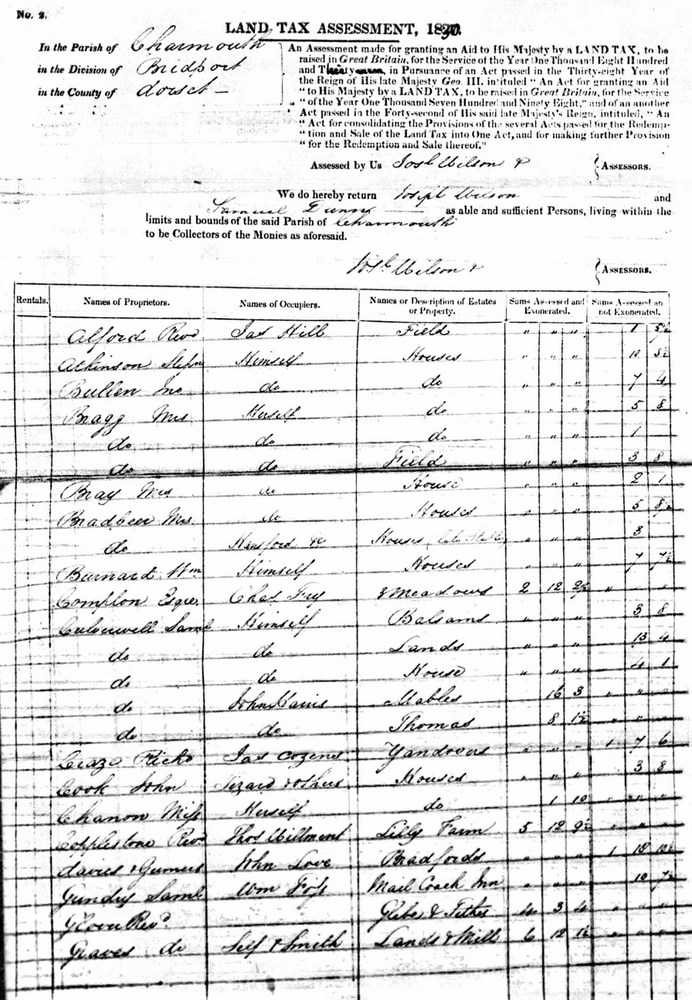 No. 2.
LAND TAX ASSESSMENT, 1830.
In the Parish of Charmouth
in the Division of Bridport
in the County of Dorset
An Assessment made for granting an Aid to His Majesty by a LAND TAX, to be
raised in Great Britain, for the Service of the Year One Thousand Eight Hundred
and Thirty in Pursuance of an Act passed in the Thirty-eight Year of
the Reign of His late Majesty Geo. III. intituled "An Act for granting an Aid
"to His Majesty by a LAND TAX, to be raised in Great Britain, for the Service
"of the Year One Thousand Seven Hundred and Ninety Eight," and of an another
Act passed in the Forty-second of His said late Majesty's Reign, intituled, "An
"Act for consolidating the Provisions of the several Acts passed for the Redemp-
"tion and Sale of the Land Tax into One Act, and for making further Provision
"for the Redemption and Sale thereof."
Assessed by Us Josh Wilson & ASSESSORS.
We do hereby return Joseph Wilson and
Samuel Dunn as able and sufficient Persons, living within the
limits and bounds of the said Parish of Charmouth
to be Collectors of the Monies as aforesaid.
Josh Wilson & ASSESSORS.
Rentals. Names of Proprietors. Names of Occupiers. Names or Description of Estates or Property. Sums Assessed and Exonerated. Sums Assessed an not Exonerated.
Alford Revd Jas Hill Field " " " 1 5½
Atkinson Himself Houses " " " 10 5½
Bullen Jno do do " " " 7 4
Bragg Mrs Herself do " " " 5 8
do do do " " " 1
do do Field " " " 3 8
Bray Mrs do House " " " 2 1
Bradbeer Mrs do Houses " " " 5 8½
do Hansford &c Houses 3
Burnard Wm Himself Houses " " " 7 7½
Compton Esqre. Chas Fry & Meadows 2 12 2½
Culverwell Saml Himself Balsams " " " 3 8
do do Lands " " " 13 4
do do House " " " 4 1
do John Mables 16 3
do do Thomas 8 1½
Jas Cozens Yandovers " " " 1 7 6
Cook John Lizard & others Houses " " " 3 8
Chanon Miss Herself do 1 10
Copplestone Revd Thos Willment Lilly Farm 5 12 9½
Davies & John Love Bradfords " " " 1 18
Gundry Saml Wm Foss Mail Coach Inn " " " 10 7½
Glover Revd. Glebe & Tithes 4 3 4
Graves do Self & Smith Lands & Mill 6 12 1½